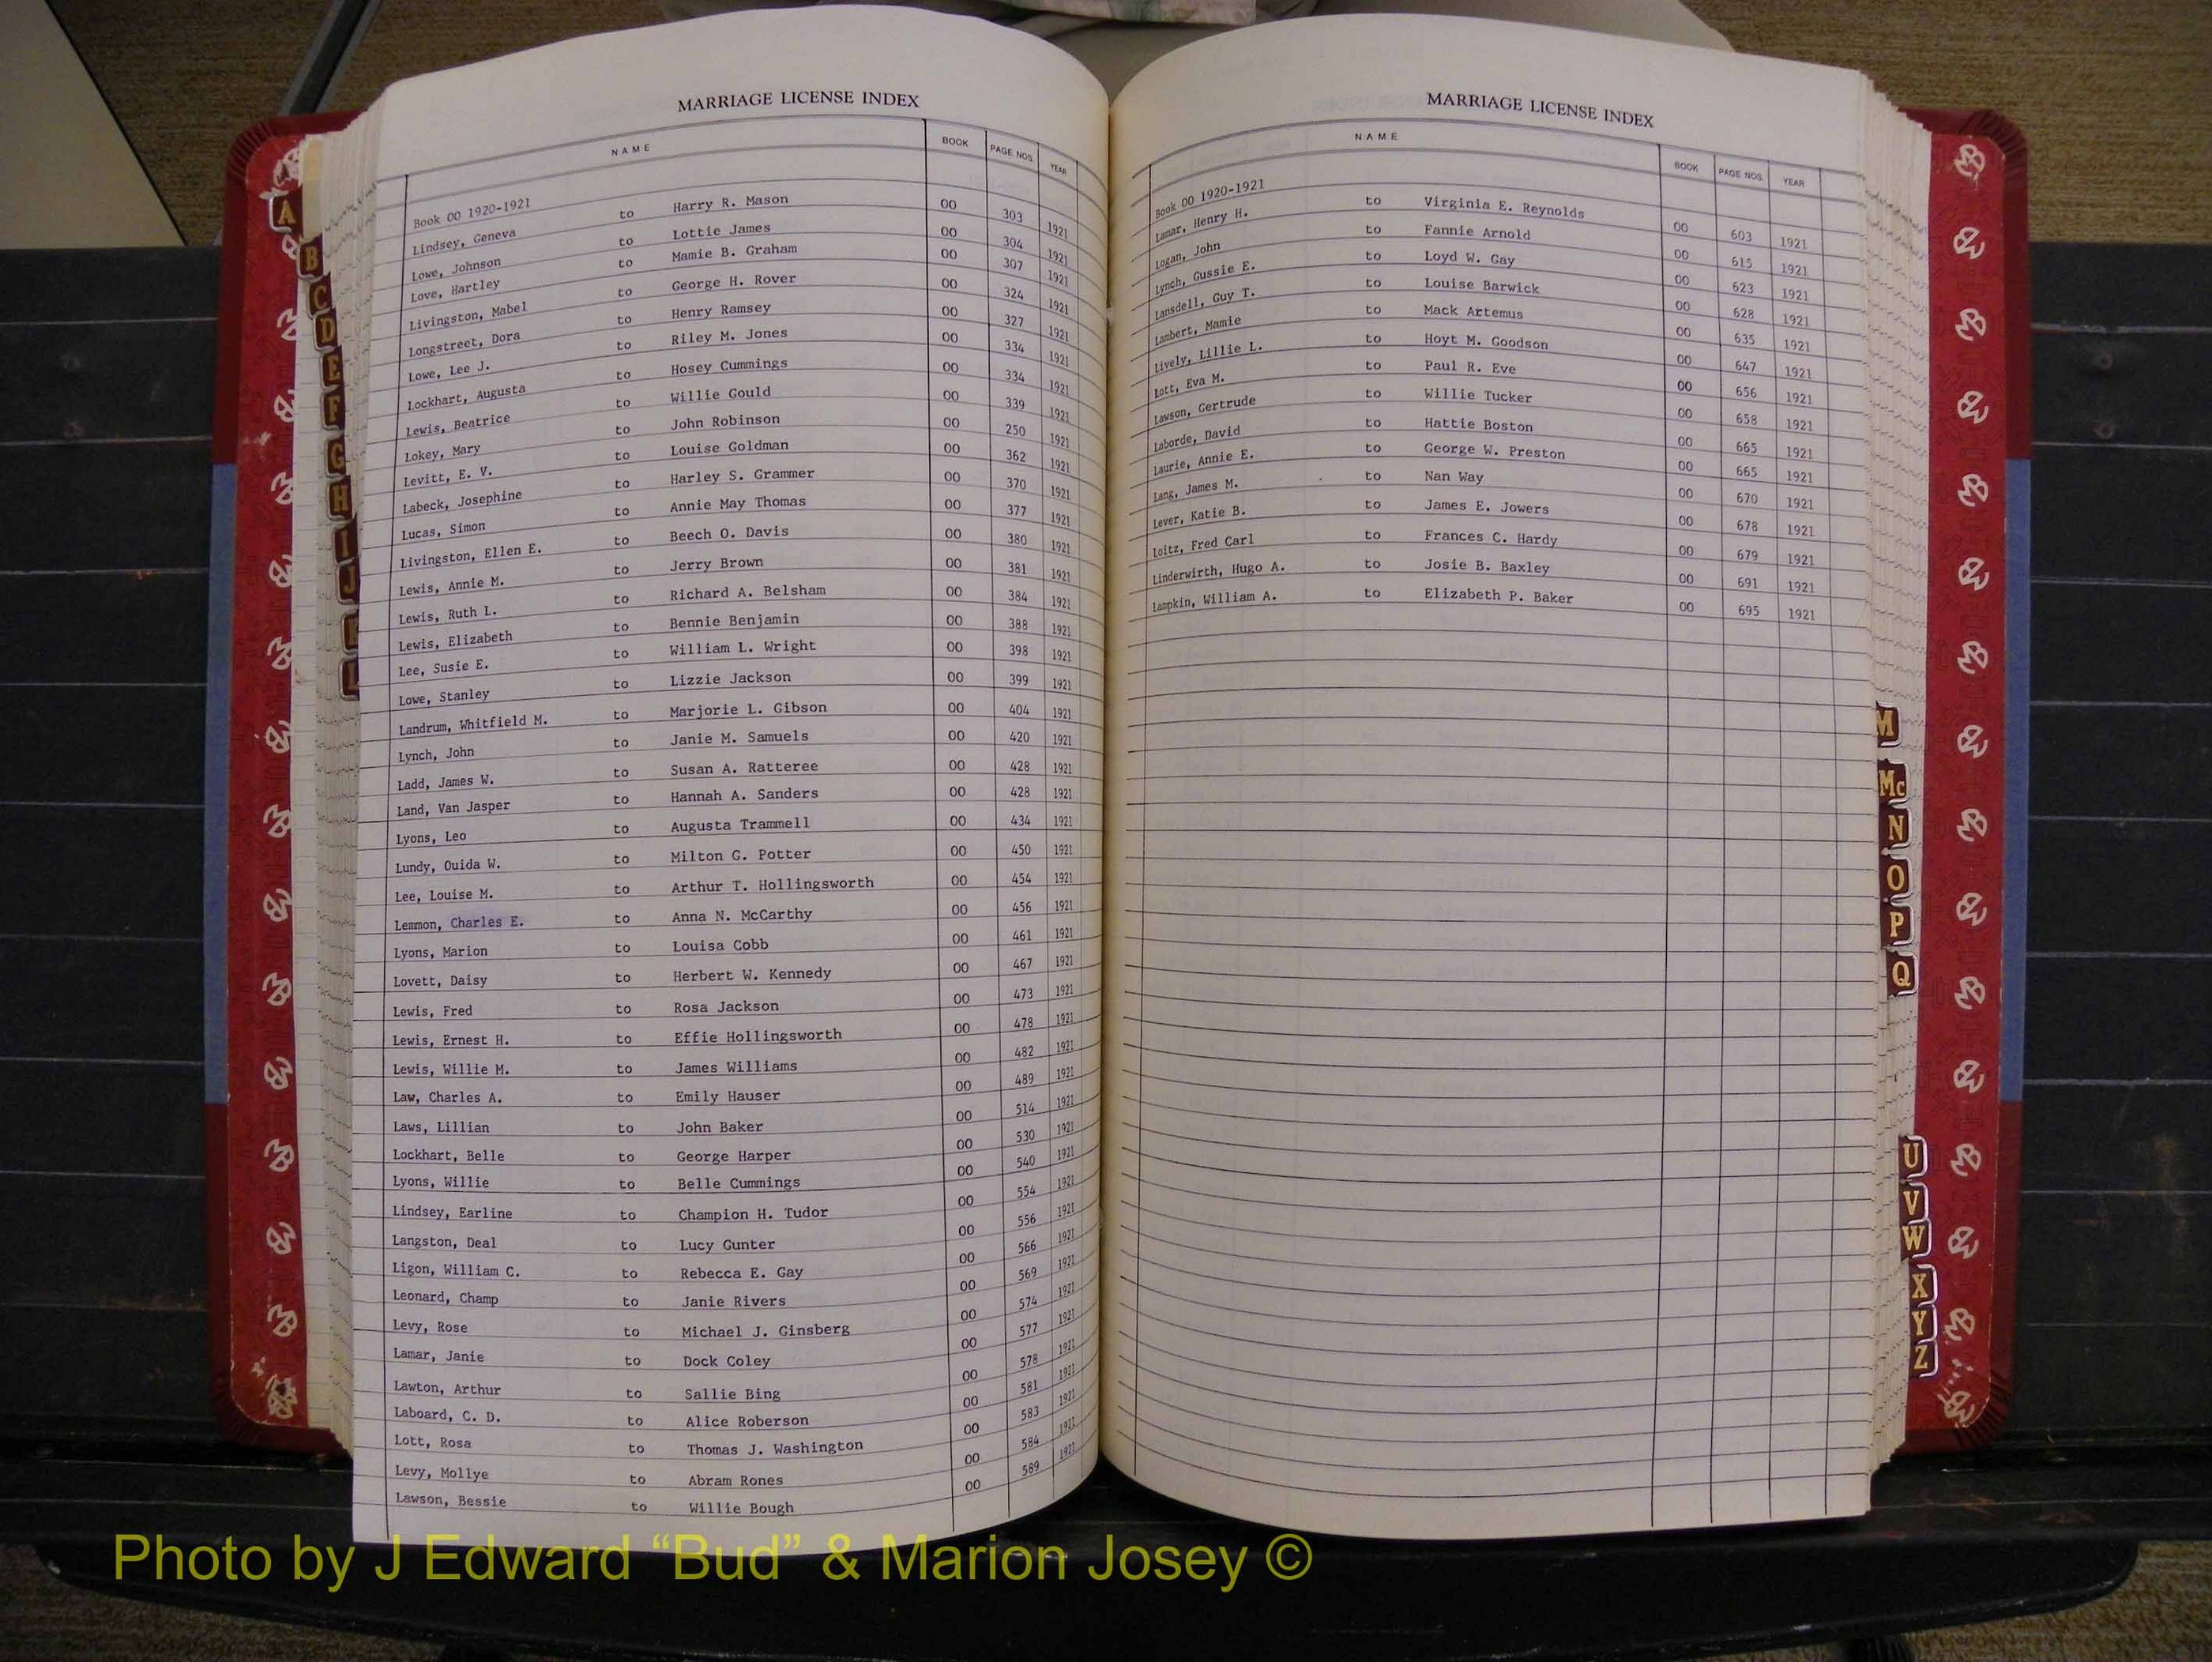 MARRIAGE LICENSE INDEX
NAME BOOK PAGE NOS. YEAR
Book 00 1920-1921
Lindsey, Geneva to Harry R. Mason 00 303 1921
Lowe, Johnson to Lottie James 00 304 1921
Love, Hartley to Mamie B. Graham 00 307 1921
Livingston, Mabel to George H. Rover 00 324 1921
Longstreet, Dora to Henry Ramsey 00 327 1921
Lowe, Lee J. to Riley M. Jones 00 334 1921
Lockhart, Augusta to Hosey Cummings 00 334 1921
Lewis, Beatrice to Willie Gould 00 339 1921
Lokey, Mary to John Robinson 00 250 1921
Levitt, E. V. to Louise Goldman 00 362 1921
Labeck, Josephine to Harley S. Grammer 00 370 1921
Lucas, Simon to Annie May Thomas 00 377 1921
Livingston, Ellen E. to Beech O. Davis 00 380 1921
Lewis, Annie M. to Jerry Brown 00 381 1921
Lewis, Ruth L. to Richard A. Belsham 00 384 1921
Lewis, Elizabeth to Bennie Benjamin 00 388 1921
Lee, Susie E. to William L. Wright 00 398 1921
Lowe, Stanley to Lizzie Jackson 00 399 1921
Landrum, Whitfield M. to Marjorie L. Gibson 00 404 1921
Lynch, John to Janie M. Samuels 00 420 1921
Ladd, James W. to Susan A. Ratteree 00 428 1921
Land, Van Jasper to Hannah A. Sanders 00 428 1921
Lyons, Leo to Augusta Trammell 00 434 1921
Lundy, Ouida W. to Milton G. Potter 00 450 1921
Lee, Louise M. to Arthur T. Hollingsworth 00 454 1921
Lemmon, Charles E. to Anna N. McCarthy 00 456 1921
Lyons, Marion to Louisa Cobb 00 461 1921
Lovett, Daisy to Herbert W. Kennedy 00 467 1921
Lewis, Fred to Rosa Jackson 00 473 1921
Lewis, Ernest H. to Effie Hollingsworth 00 478 1921
Lewis, Willie M. to James Williams 00 482 1921
Law, Charles A. to Emily Hauser 00 489 1921
Laws, Lillian to John Baker 00 514 1921
Lockhart, Belle to George Harper 00 530 1921
Lyons, Willie to Belle Cummings 00 540 1921
Lindsey, Earline to Champion H. Tudor 00 554 1921
Langston, Deal to Lucy Gunter 00 556 1921
Ligon, William C. to Rebecca E. Gay 00 566 1921
Leonard, Champ to Janie Rivers 00 569 1921
Levy, Rose to Michael J. Ginsberg 00 574 1921
Lamar, Janie to Dock Coley 00 577 1921
Lawton, Arthur to Sallie Bing 00 578 1921
Laboard, C. D. to Alice Roberson 00 581 1921
Lott, Rosa to Thomas J. Washington 00 583 1921
Levy, Mollye to Abram Rones 00 584 1921
Lawson, Bessie to Willie Bough 00 589 1921
MARRIAGE LICENSE INDEX
NAME BOOK PAGE NOS. YEAR
Book 00 1920-1921
Lamar, Henry H. to Virginia E. Reynolds 00 603 1921
Logan, John to Fannie Arnold 00 615 1921
Lynch, Gussie E. to Loyd W. Gay 00 623 1921
Lansdell, Guy T. to Louise Barwick 00 628 1921
Lambert, Mamie to Mack Artemus 00 635 1921
Lively, Lillie L. to Hoyt M. Goodson 00 647 1921
Lott, Eva M. to Paul R. Eve 00 656 1921
Lawson, Gertrude to Willie Tucker 00 658 1921
Laborde, David to Hattie Boston 00 665 1921
Laurie, Annie E. to George W. Preston 00 665 1921
Lang, James M. to Nan Way 00 670 1921
Lever, Katie B. to James E. Jowers 00 678 1921
Loitz, Fred Carl to Frances C. Hardy 00 679 1921
Linderwirth, Hugo A. to Josie B. Baxley 00 691 1921
Lampkin, William A. to Elizabeth P. Baker 00 695 1921
A
B
C
D
E
F
G
H
I
J
K
L
M
Mc
N
O
P
Q
U
V
W
X
Y
Z
Photo by J Edward “Bud” & Marion Josey ©